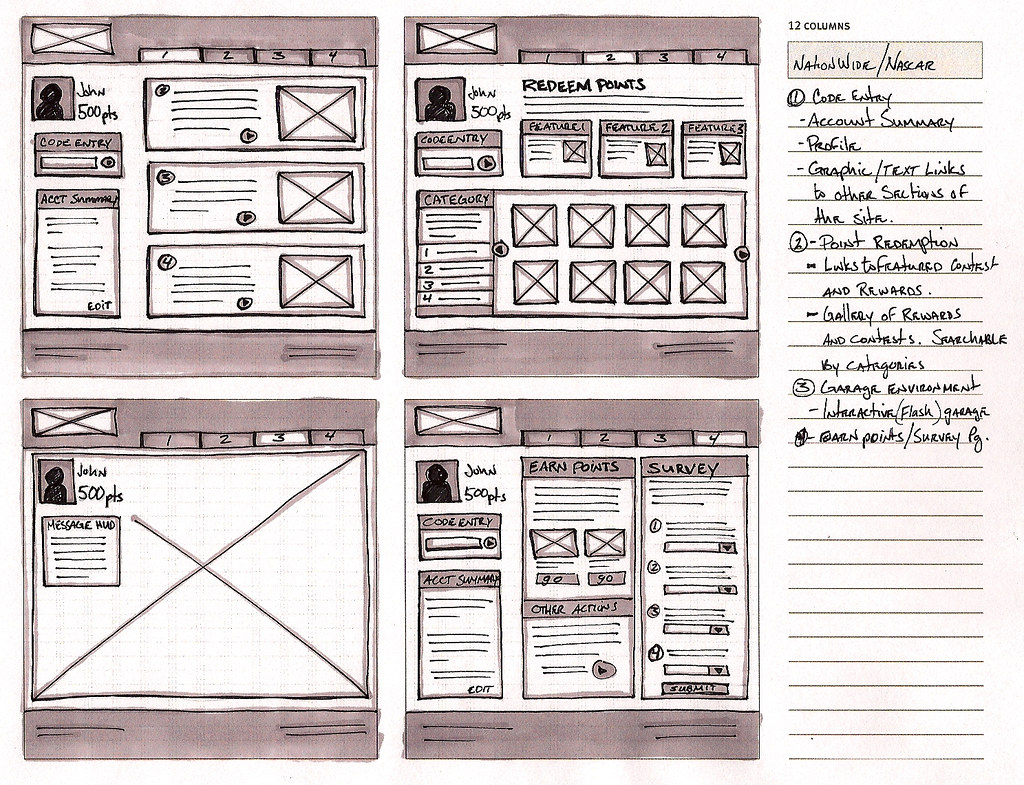 1 2 3 4
John
500pts
CODE ENTRY
ACCT SUMMARY
EDIT
2
3
4
1 2 3 4
John
500pts
CODE ENTRY
REDEEM POINTS
FEATURE 1
FEATURE 2
FEATURE 3
CATEGORY
1
2
3
4
1 2 3 4
John
500pts
MESSAGE HUD
1 2 3 4
John
500pts
CODE ENTRY
ACCT SUMMARY
EDIT
EARN POINTS
GO GO
OTHER ACTIONS
SURVEY
1
2
3
4
SUBMIT
12 COLUMNS
NATIONWIDE/NASCAR
1 CODE ENTRY
- ACCOUNT SUMMARY
- PROFILE
- GRAPHIC/TEXT LINKS
to other SECTIONS OF
the site.
2 - POINT REDEMPTION
- LINKS to FEATURED CONTEST
AND REWARDS.
- GALLERY OF REWARDS
AND CONTESTS. SEARCHABLE
BY CATEGORIES
3 GARAGE ENVIRONMENT
- INTERACTIVE (Flash) garage
4 - EARN POINTS/SURVEY Pg.